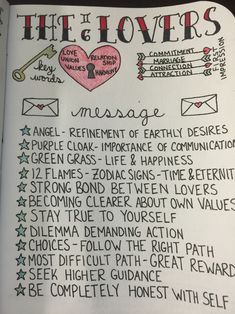 THE II 6 LOVERS
key words
LOVE
UNION
VALUES
RELATION
SHIP
HARMONY
COMMITMENT
MARRIAGE
CONNECTION
ATTRACTION
message
ANGEL - REFINEMENT OF EARTHLY DESIRES
PURPLE CLOAK - IMPORTANCE OF COMMUNICATION
GREEN GRASS - LIFE & HAPPINESS
12 FLAMES - ZODIAC SIGNS - TIME & ETERNITY
STRONG BOND BETWEEN LOVERS
BECOMING CLEARER ABOUT OWN VALUES
STAY TRUE TO YOURSELF
DILEMMA DEMANDING ACTION
CHOICES - FOLLOW THE RIGHT PATH
MOST DIFFICULT PATH - GREAT REWARD
SEEK HIGHER GUIDANCE
BE COMPLETELY HONEST WITH SELF